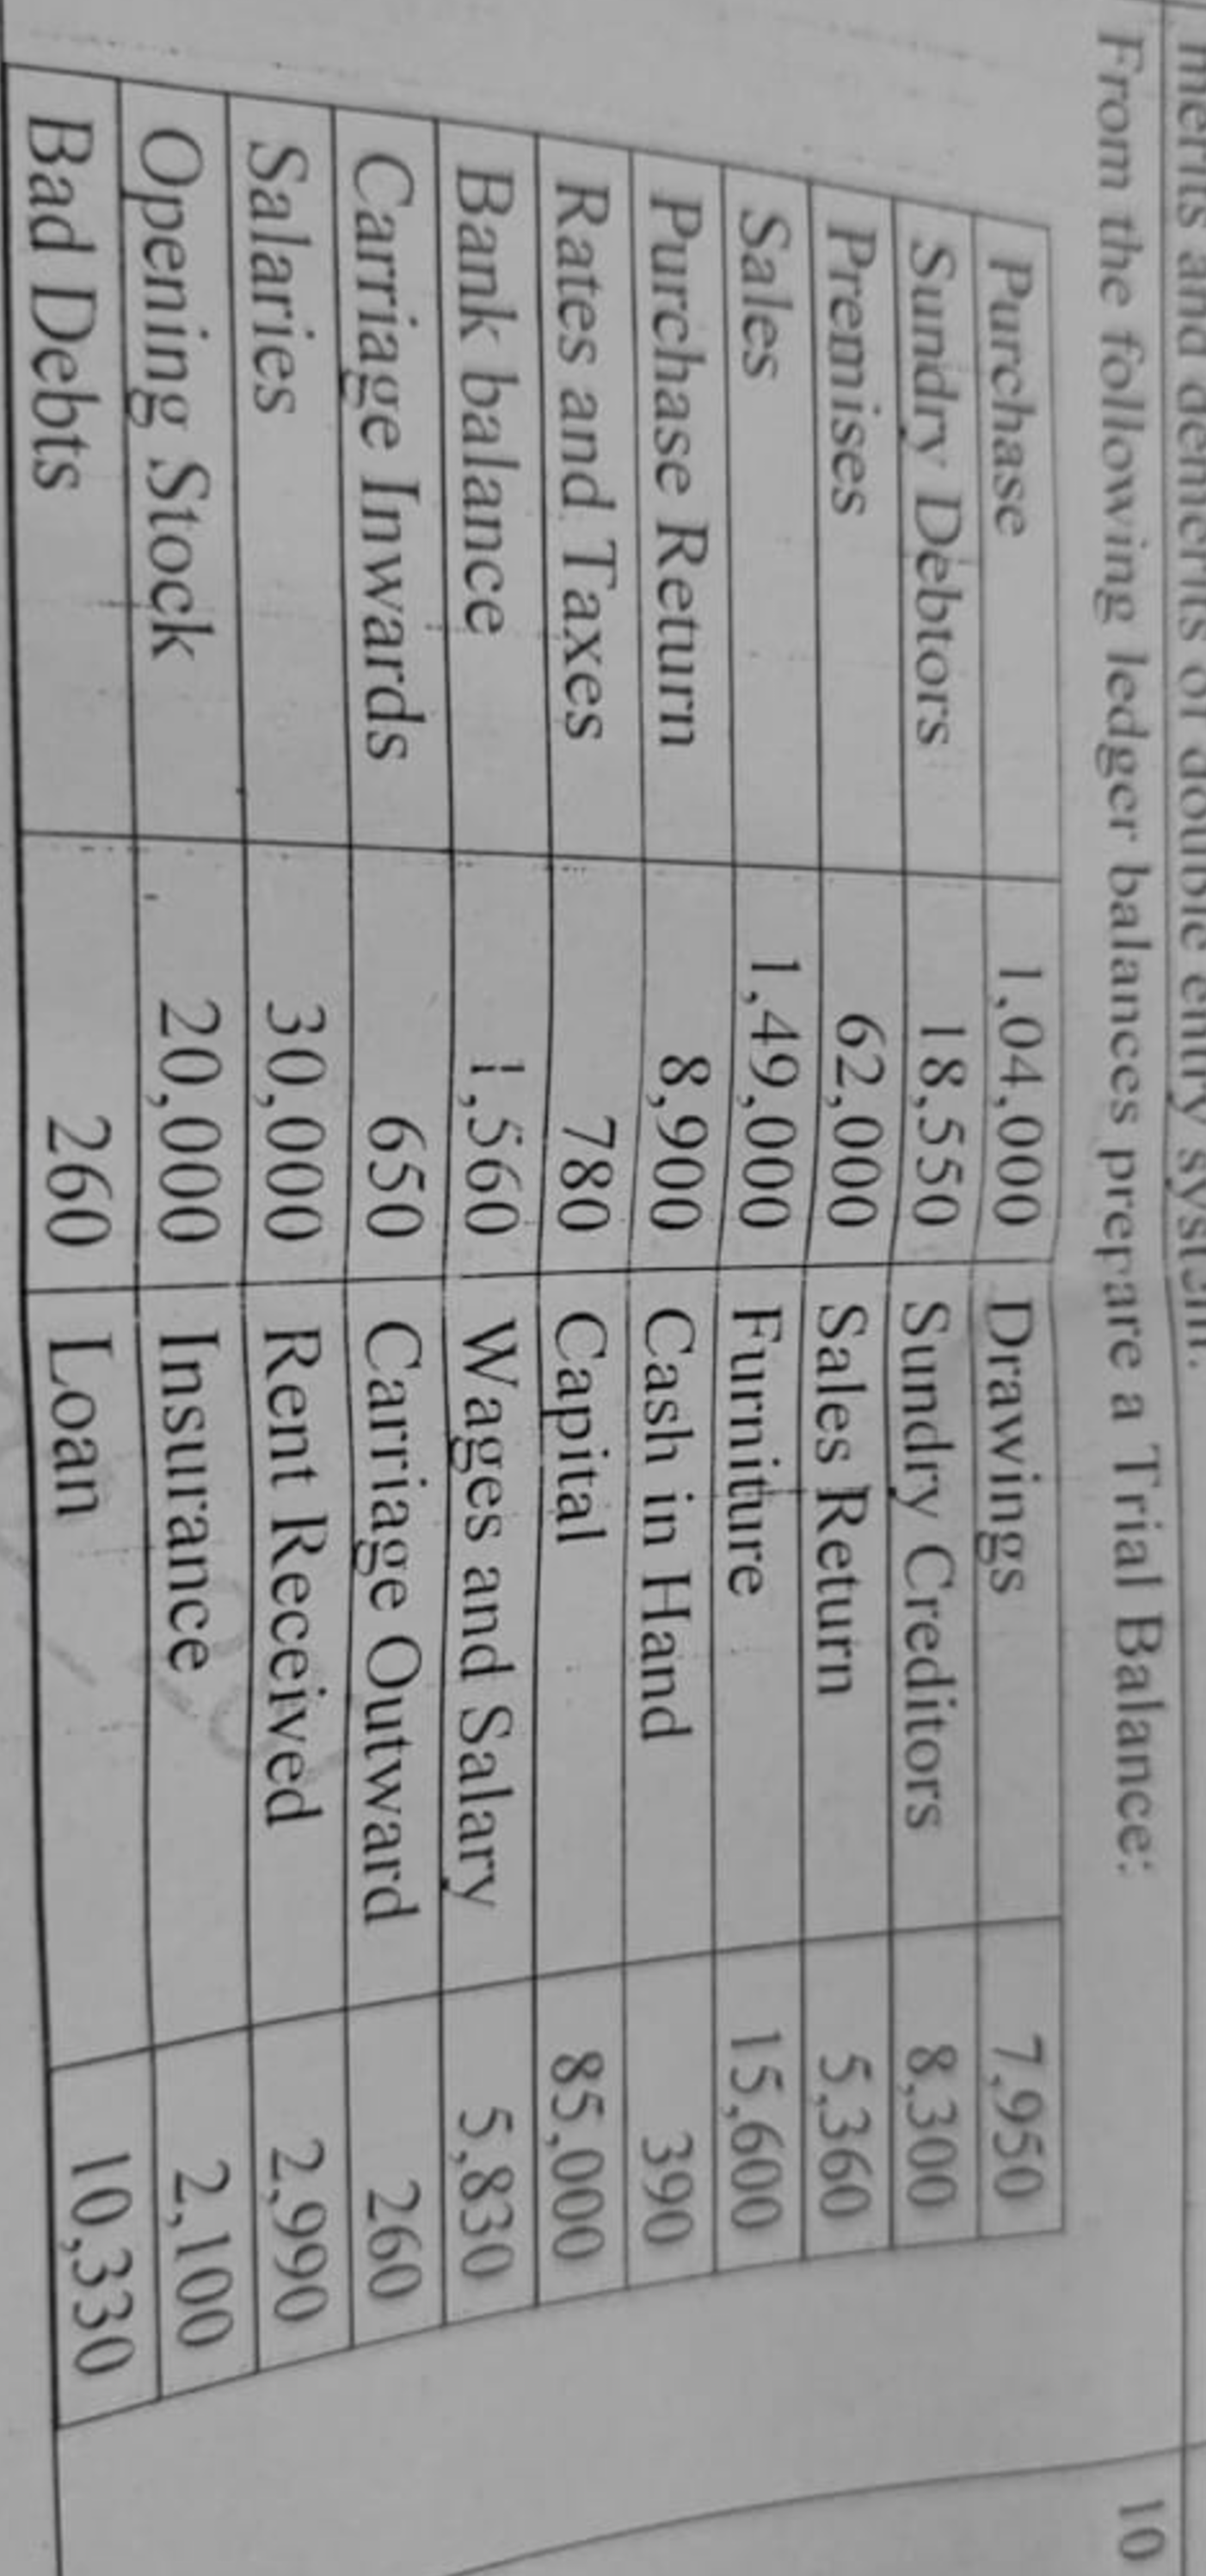 merits and demerits of double entry system.
From the following ledger balances prepare a Trial Balance: 10
Purchase 1,04,000 Drawings 7,950
Sundry Debtors 18,550 Sundry Creditors 8,300
Premises 62,000 Sales Return 5,360
Sales 1,49,000 Furniture 15,600
Purchase Return 8,900 Cash in Hand 390
Rates and Taxes 780 Capital 85,000
Bank balance 1,560 Wages and Salary 5,830
Carriage Inwards 650 Carriage Outward 260
Salaries 30,000 Rent Received 2,990
Opening Stock 20,000 Insurance 2,100
Bad Debts 260 Loan 10,330